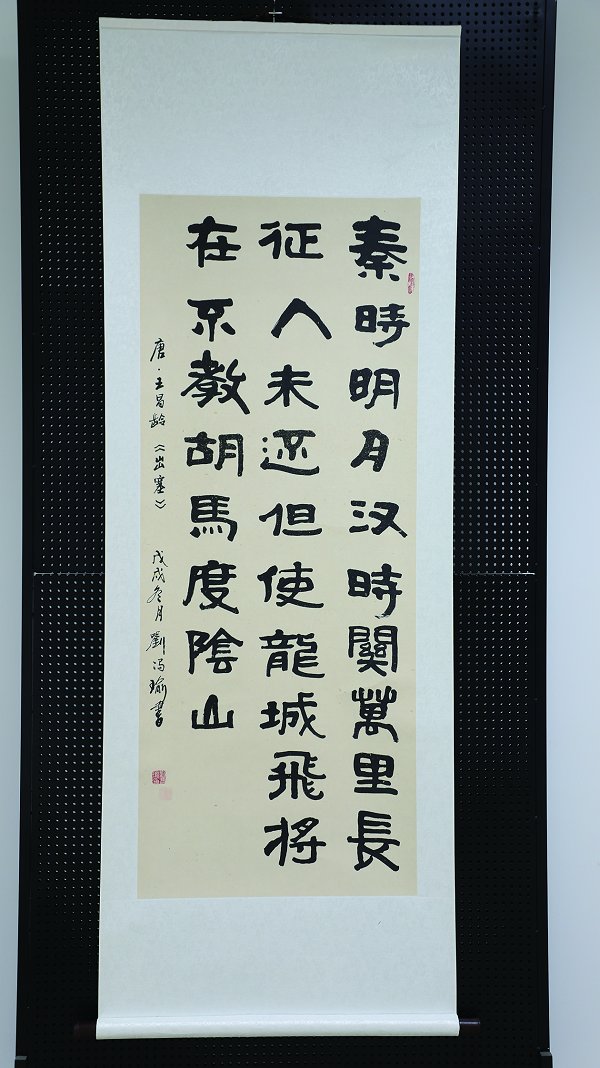 秦時明月汉時關萬里長
征人未还但使龍城飛将
在不教胡馬度陰山
唐·王昌龄《出塞》 戊戌冬月劉冯瑜書